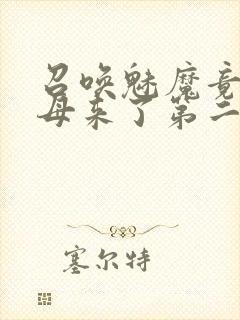 召唤魅魔竟
母来了第二
塞尔特